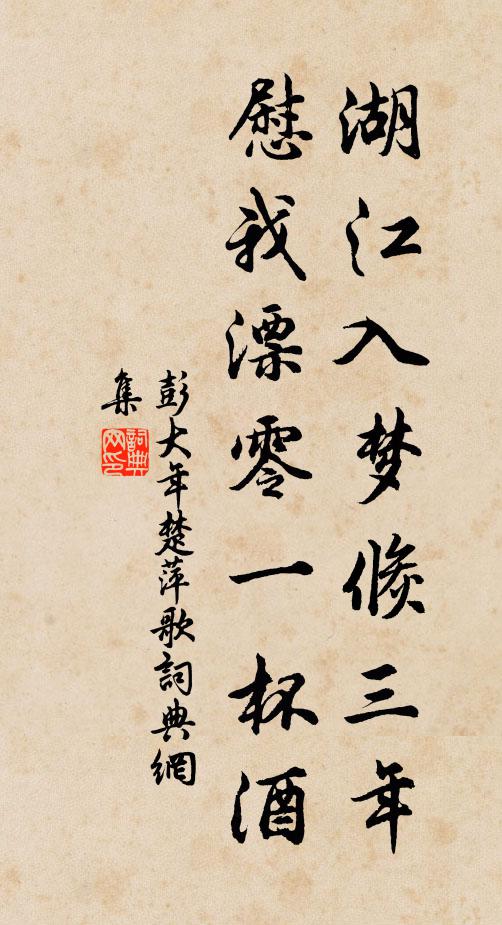 湖江入梦倏三年
慰我漂零一杯酒
彭大年楚萍歌詞典網
集
詞典
网印